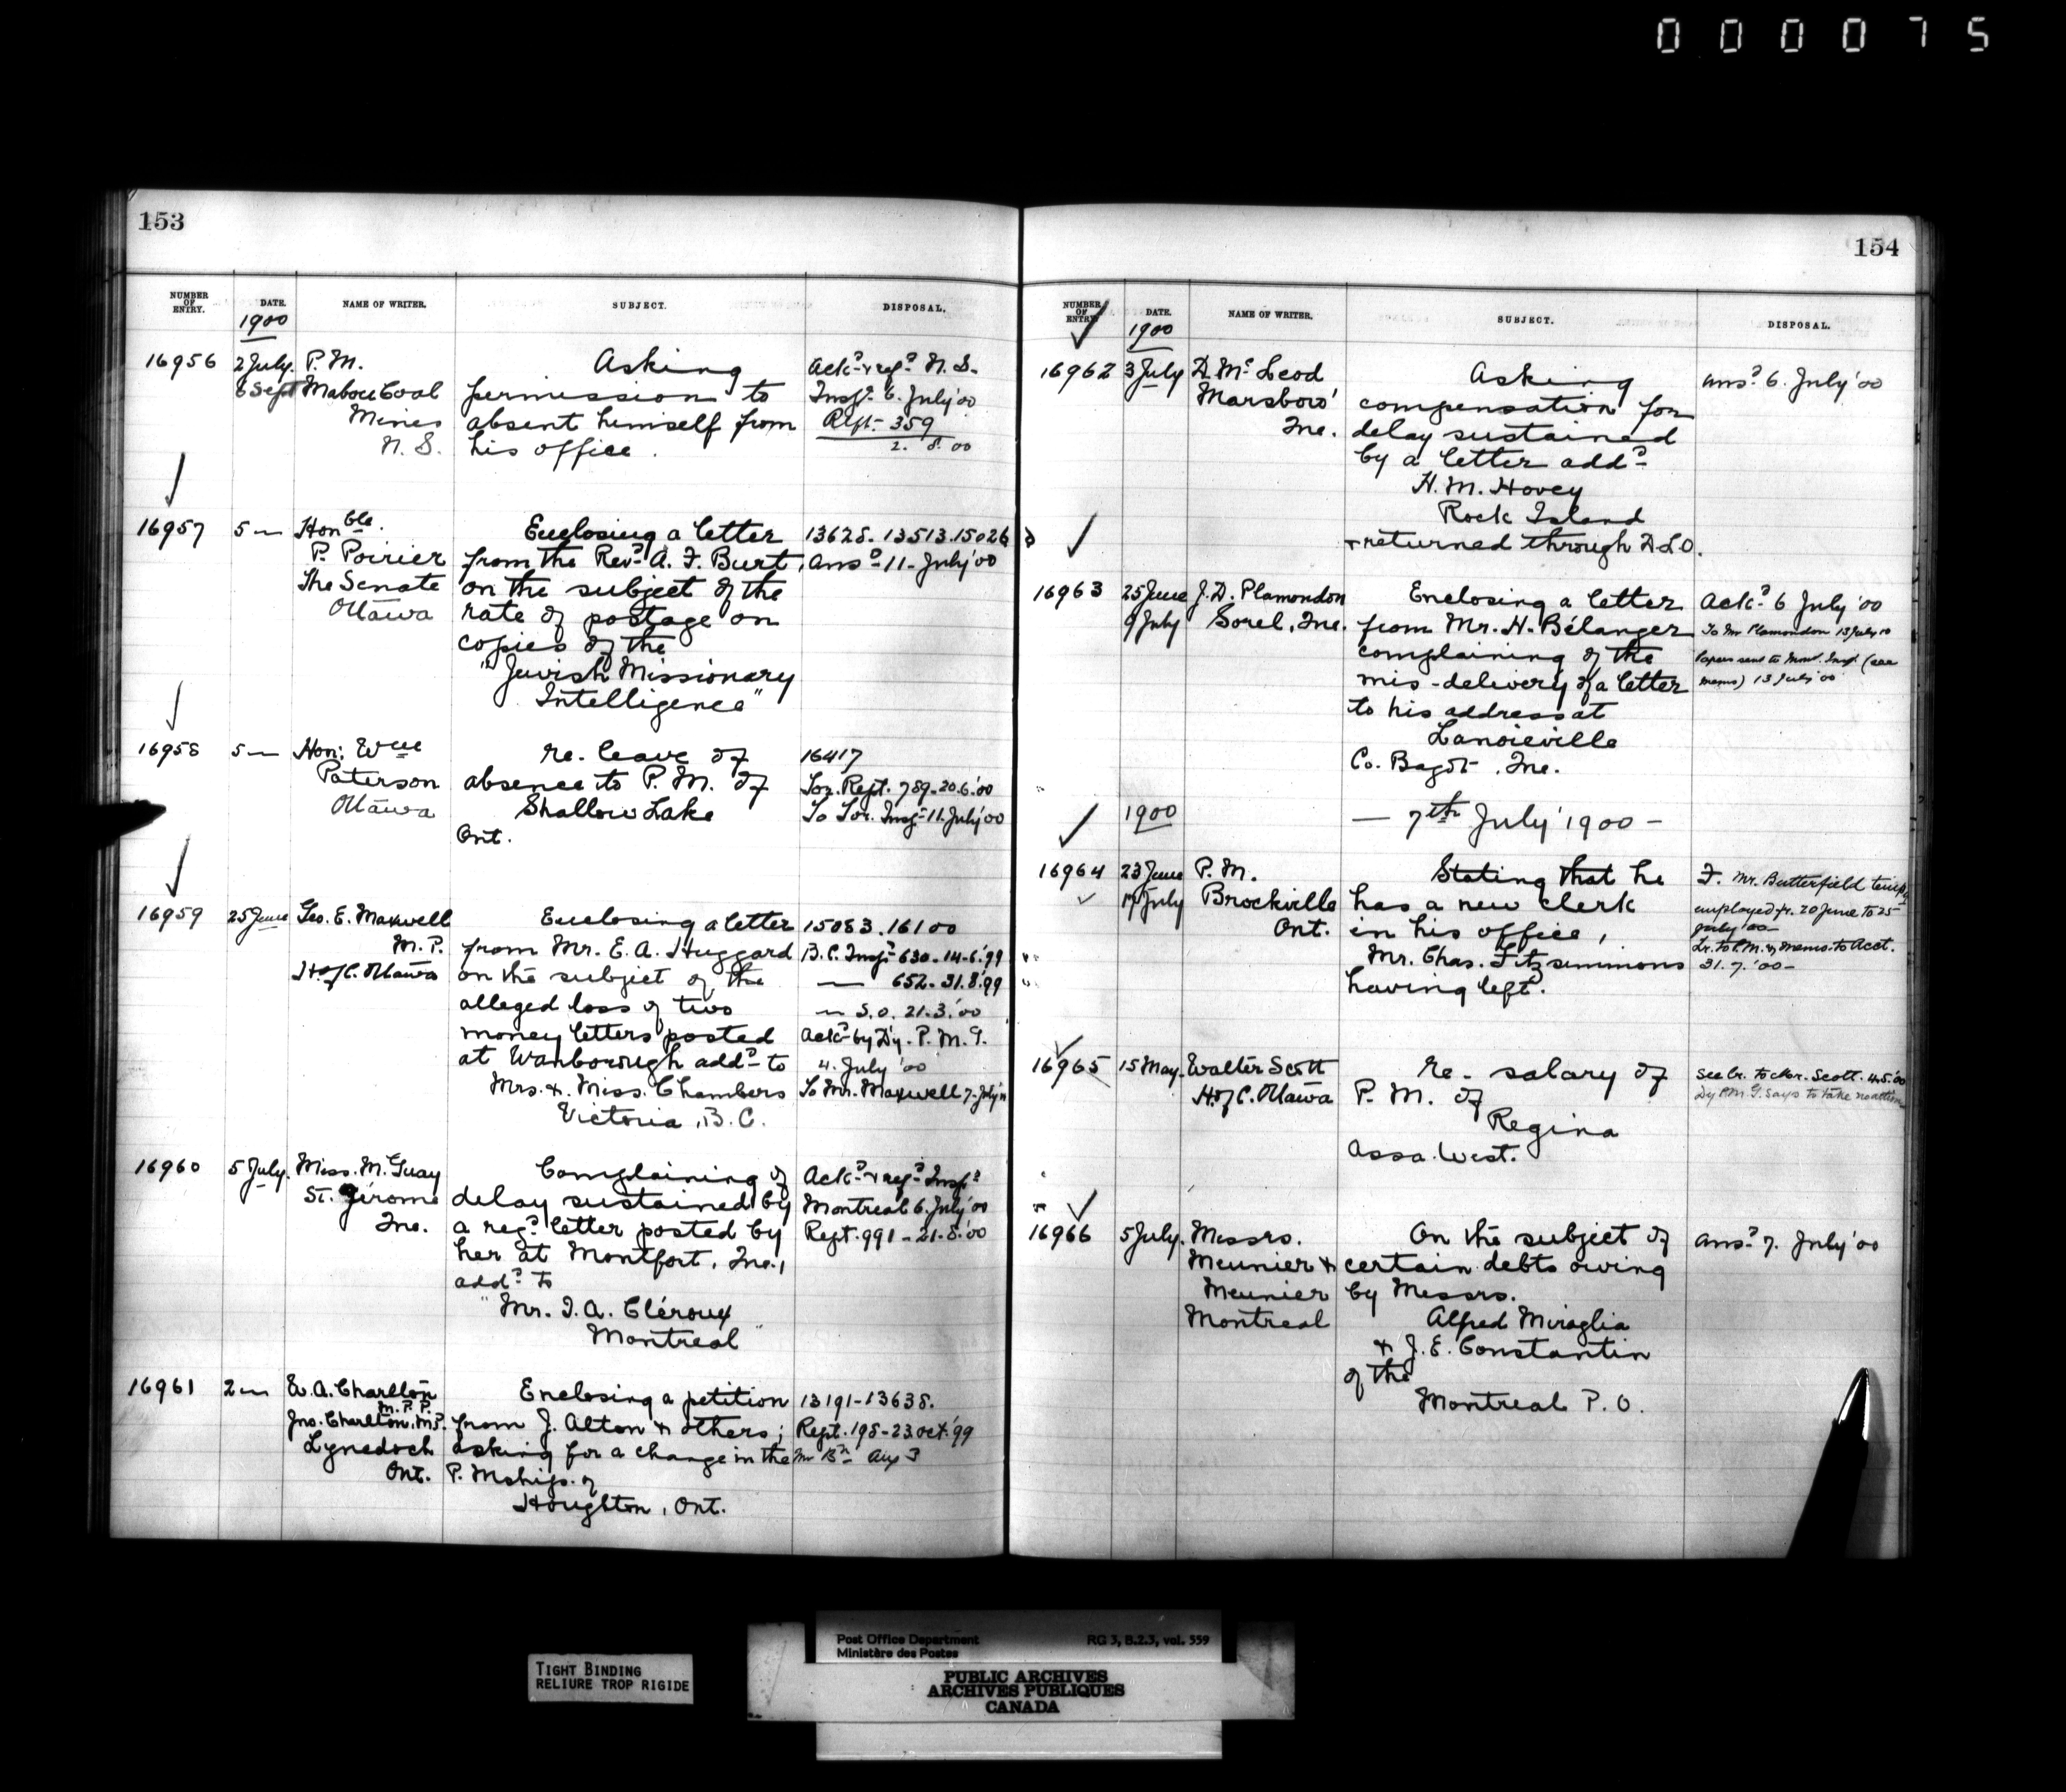 000075
153
NUMBER OF ENTRY. DATE. NAME OF WRITER. SUBJECT. DISPOSAL.
1900
16956 2 July. P. M. Asking Ackd & regd N. S.
6 Sept Mabou Coal permission to Inspr 6. July '00
Mines absent himself from Rept. 359
N. S. his office. 2. 8. 00
16957 5 — Honble. Enclosing a letter 13628. 13513. 15026
P. Poirier from the Revd A. F. Burt, ansd 11- July '00
The Senate on the subject of the
Ottawa rate of postage on
copies of the
"Jewish Missionary
Intelligence"
16958 5 — Hon: Wm re. leave of 16417
Paterson absence to P. M. of Tor. Rept. 789-20.6.'00
Ottawa Shallow Lake To Tor. Inspr 11. July '00
Ont.
16959 25 June Geo. E. Maxwell Enclosing a letter 15083. 16100
M. P. from Mr. E. A. Huggard B. C. Inspr 630-14-6.'99
H. of C. Ottawa on the subject of the — 652-31.8.'99
alleged loss of two — S.O. 21.3.'00
money letters posted Ackd by Dy. P. M. G.
at Wanborough addd to 4. July '00
Mrs. & Miss. Chambers To Mr. Maxwell 7-July '00
Victoria, B. C.
16960 5 July. Miss. M. Guay Complaining of Ackd & regd Inspr
St. Jérome delay sustained by Montreal 6. July '00
Que. a regd letter posted by Rept. 991-21.8.'00
her at Montfort, Que.,
addd to
"Mr. J. A. Cléroux
Montreal"
16961 2 — W. A. Charlton Enclosing a petition 13191-13638.
M. P. P.
Jno. Charlton, M.P. from J. Alton & others; Rept. 198-23 Oct. '99
Lynedoch asking for a change in the Mr Bn Aug 3
Ont. P. Mship. of
Houghton, Ont.
154
NUMBER OF ENTRY. DATE. NAME OF WRITER. SUBJECT. DISPOSAL.
1900
16962 3 July D. McLeod Asking ansd 6. July '00
Marsboro' compensation for
Que. delay sustained
by a letter addd
H. M. Hovey
Rock Island
& returned through D L O.
16963 25 June J. D. Plamondon Enclosing a letter Ackd 6 July '00
9 July Sorel, Que. from Mr. H. Bélanger To Mr Plamondon 13 July 00
complaining of the Papers sent to Mont. Inspr (see
mis-delivery of a letter memo) 13 July '00
to his address at
Lanoieville
Co. Bagot, Que.
1900 — 7th July 1900 —
16964 23 June P. M. Stating that he F. Mr. Butterfield tempy
17 July Brockville has a new clerk employed fr. 20 June to 25
Ont. in his office, July '00—
Mr. Chas. Fitzsimmons Lr. to P.M. & memo. to Acct.
having left. 31. 7. '00—
16965 15 May. Walter Scott re- salary of See lr. to Mr. Scott. 4.5.'00
H. of C. Ottawa P. M. of Dy P.M G. says to take no action
Regina
Assa. West.
16966 5 July. Messrs. On the subject of ansd 7. July '00
Meunier & certain debts owing
Meunier by Messrs.
Montreal Alfred Miraglia
& J. E. Constantin
of the
Montreal P. O.
TIGHT BINDING
RELIURE TROP RIGIDE
Post Office Department RG 3, B.2.3, vol. 559
Ministère des Postes
PUBLIC ARCHIVES
ARCHIVES PUBLIQUES
CANADA